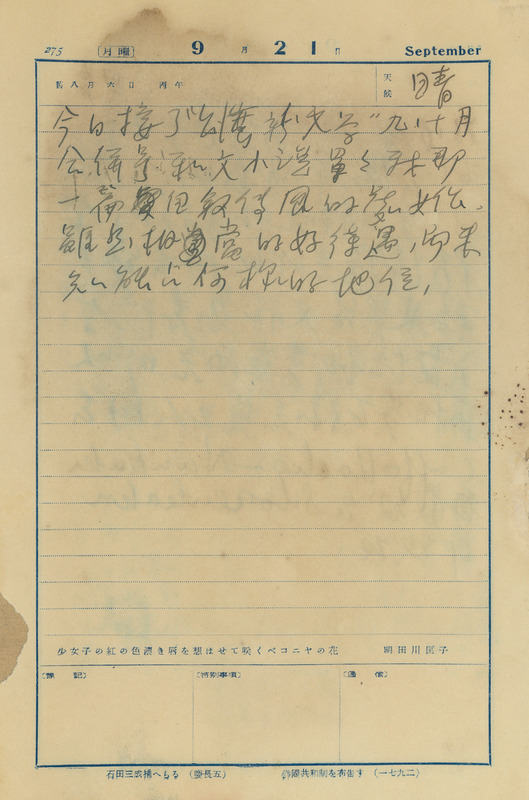 275 月曜 9月21日 September
舊八月六日 丙午 天候 晴
今日接了台灣新文學"九、十月
合併号和文小說
十篇
雖然相當的好待遇，尚未
知能占何樣的地位，
少女子の紅の色濃き唇を想はせて咲くベコニヤの花 明田川匡子
〔雜記〕 〔特別事項〕 〔通信〕
石田三成捕へらる（慶長五） 佛國共和制を布告す（一七九二）